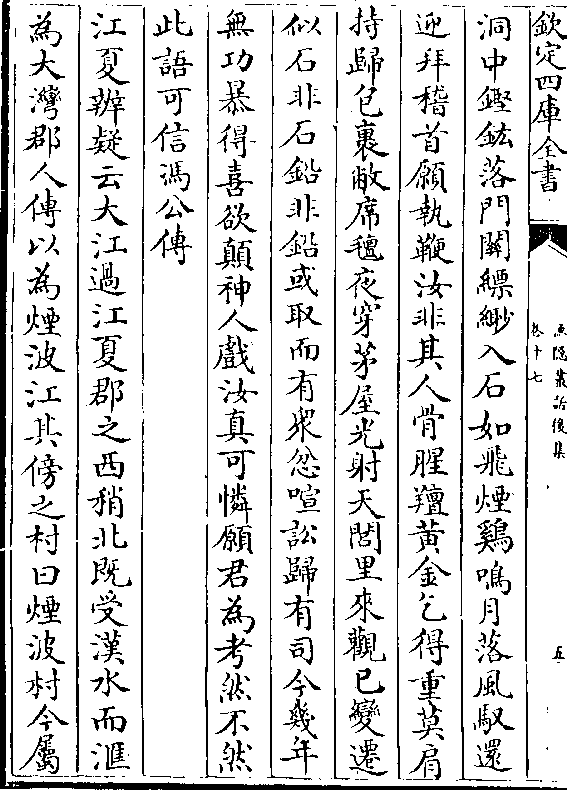 欽定四庫全書
漁隱叢話後集
卷十七
五
洞中鏗鈜落門關縹緲入石如飛煙鷄鳴月落風馭還
迎拜稽首願執鞭汝非其人骨腥羶黃金乞得重莫肩
持歸包裹敝席氊夜穿茅屋光射天閭里來觀已變遷
似石非石鉛非鉛或取而有衆忿喧訟歸有司今幾年
無功暴得喜欲顛神人戲汝真可憐願君為考然不然
此語可信馮公傳
江夏辨疑云大江過江夏郡之西稍北既受漢水而滙
為大灣郡人傳以為煙波江其傍之村曰煙波村今屬